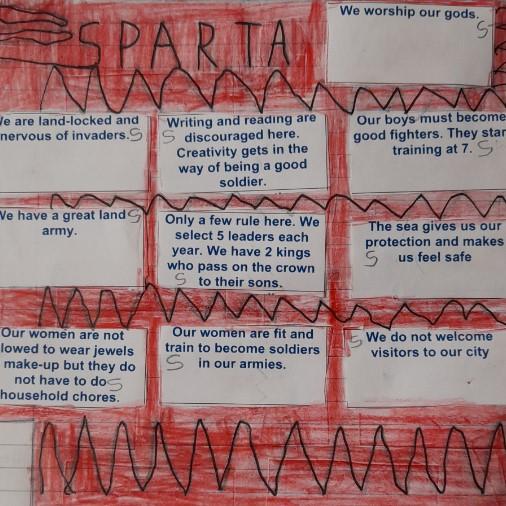 SPARTA
We worship our gods.
S
We are land-locked and
nervous of invaders. S
Writing and reading are
S discouraged here.
Creativity gets in the
way of being a good
soldier.
Our boys must become
good fighters. They star
training at 7. S
We have a great land S
army.
Only a few rule here. We
select 5 leaders each
year. We have 2 kings
who pass on the crown
S to their sons.
The sea gives us our
protection and makes
S us feel safe
Our women are not
lowed to wear jewels
make-up but they do
not have to do S
household chores.
Our women are fit and
train to become soldiers
S in our armies.
S We do not welcome
visitors to our city